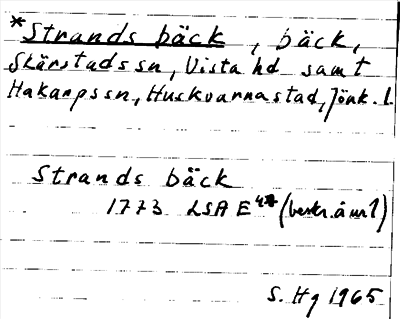 *Strands bäck, bäck,
Skärstads sn, Vista hd samt
Hakarps sn, Huskvarna stad, Jönk. l.
Strands bäck
1773 LSA E (beskr. å nr 1)
S. Hg 1965